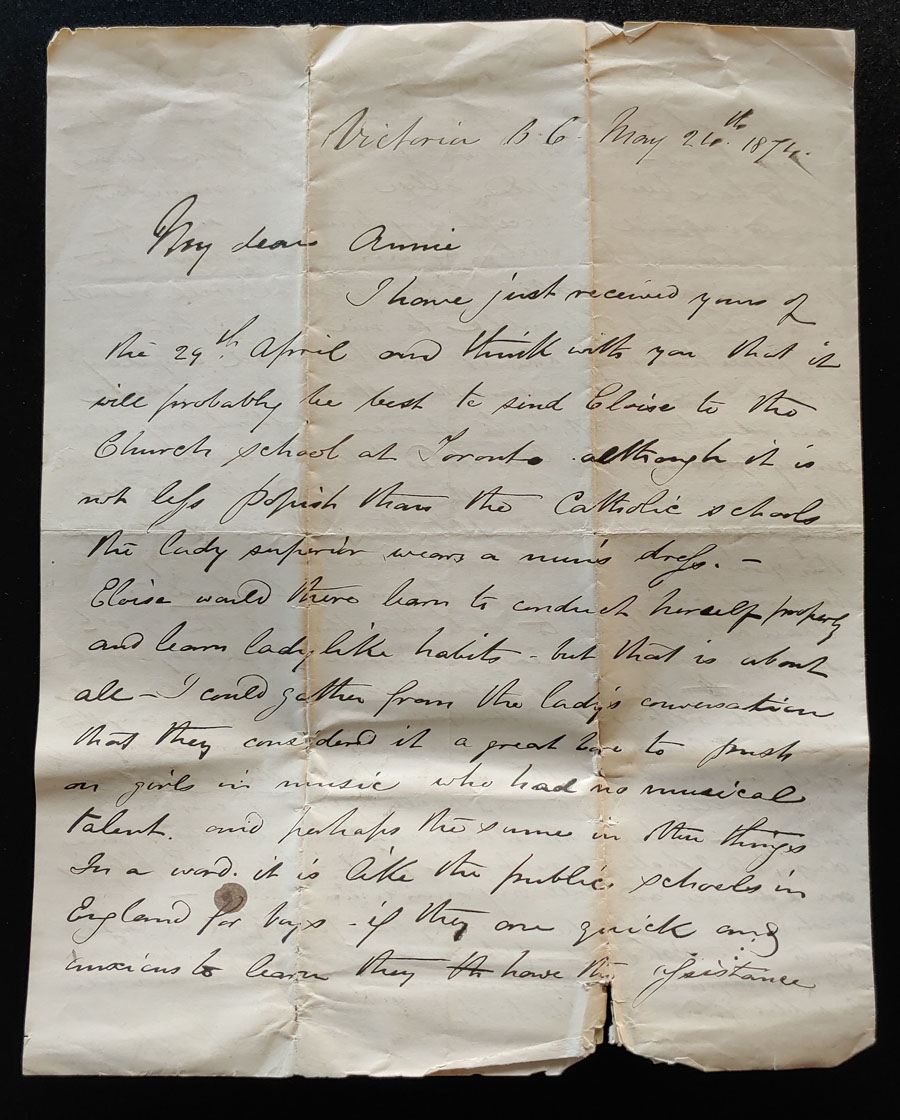 Victoria B. C. May 24th. 1874.
My dear Annie
I have just received yours of
the 29th. April and think with you that it
will probably be best to send Eloise to the
Church school at Toronto although it is
not less popish than the Catholic schools
the lady superior wears a nun's dress. –
Eloise would there learn to conduct herself properly
and learn lady like habits - but that is about
all – I could gather from the lady's conversation
that they considered it a great bore to push
on girls in music who had no musical
talent. and perhaps the same in other things
In a word. it is like the public schools in
England for boys - if they are quick and
anxious to learn they th have the assistance